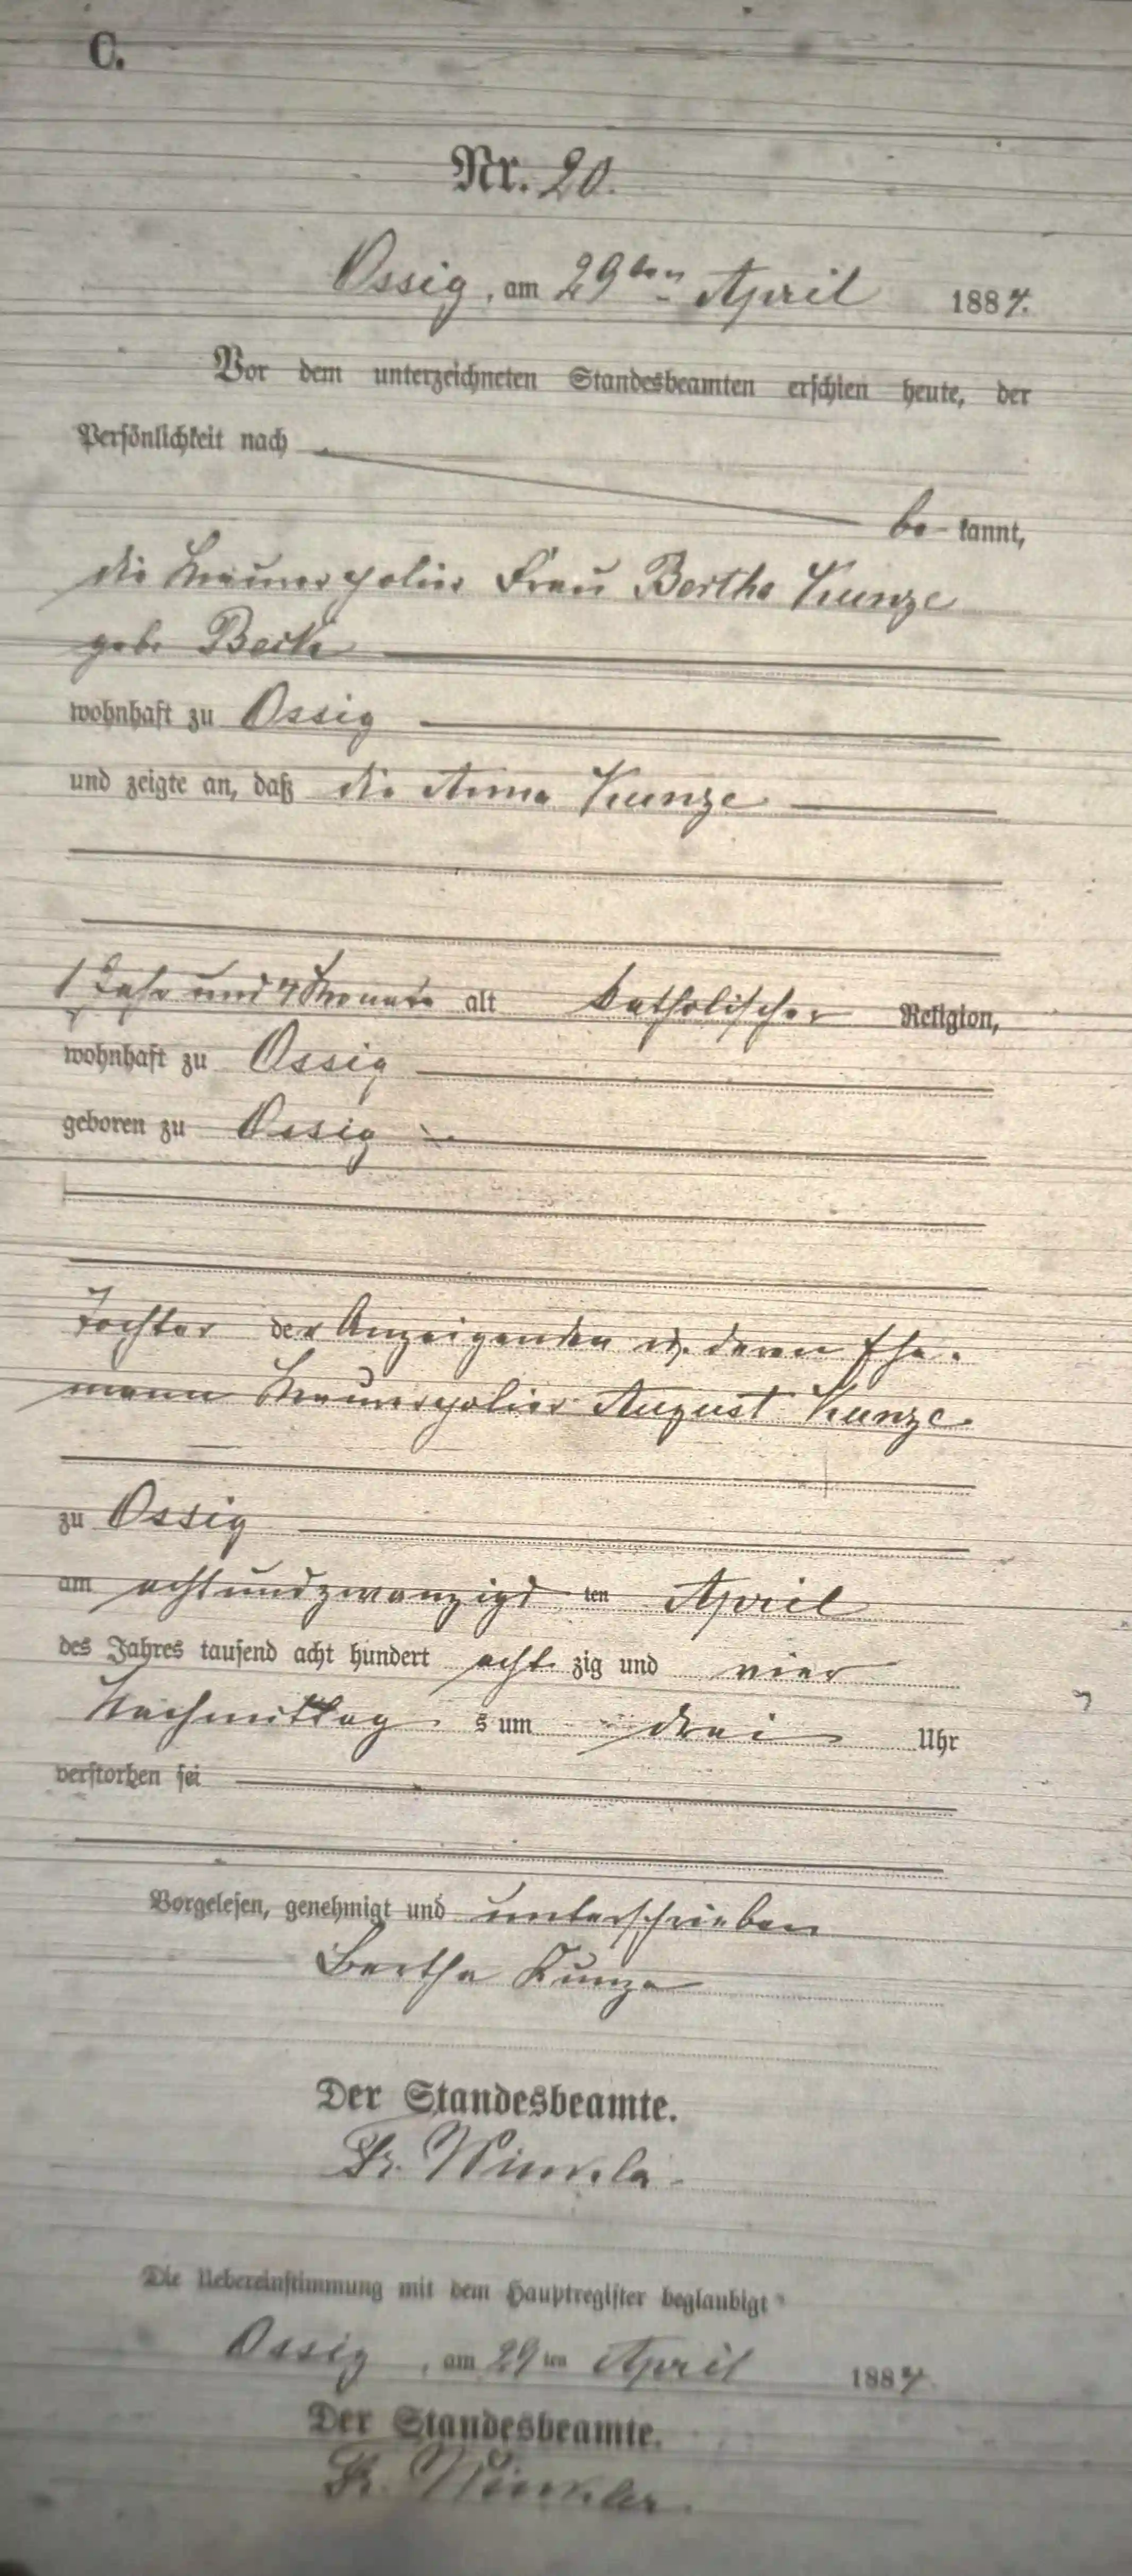 C.
Nr. 20.
Ossig, am 29ten April 1884.
Vor dem unterzeichneten Standesbeamten erschien heute, der
Persönlichkeit nach
be kannt,
die Maurerpolier Frau Bertha Kunze
geb. Beck
wohnhaft zu Ossig
und zeigte an, daß die Anna Kunze
1 Jahr und 4 Monate alt katholischer Religion,
wohnhaft zu Ossig
geboren zu Ossig
Tochter der Anzeigenden u. deren Ehe-
mann Maurerpolier August Kunze
zu Ossig
am achtundzwanzigs ten April
des Jahres tausend acht hundert acht zig und vier
Nachmittag s um drei Uhr
verstorben sei
Vorgelesen, genehmigt und unterschrieben
Bertha Kunze
Der Standesbeamte.
Fr. Winkler
Die Uebereinstimmung mit dem Hauptregister beglaubigt
Ossig, am 29ten April 1884
Der Standesbeamte.
Fr. Winkler.